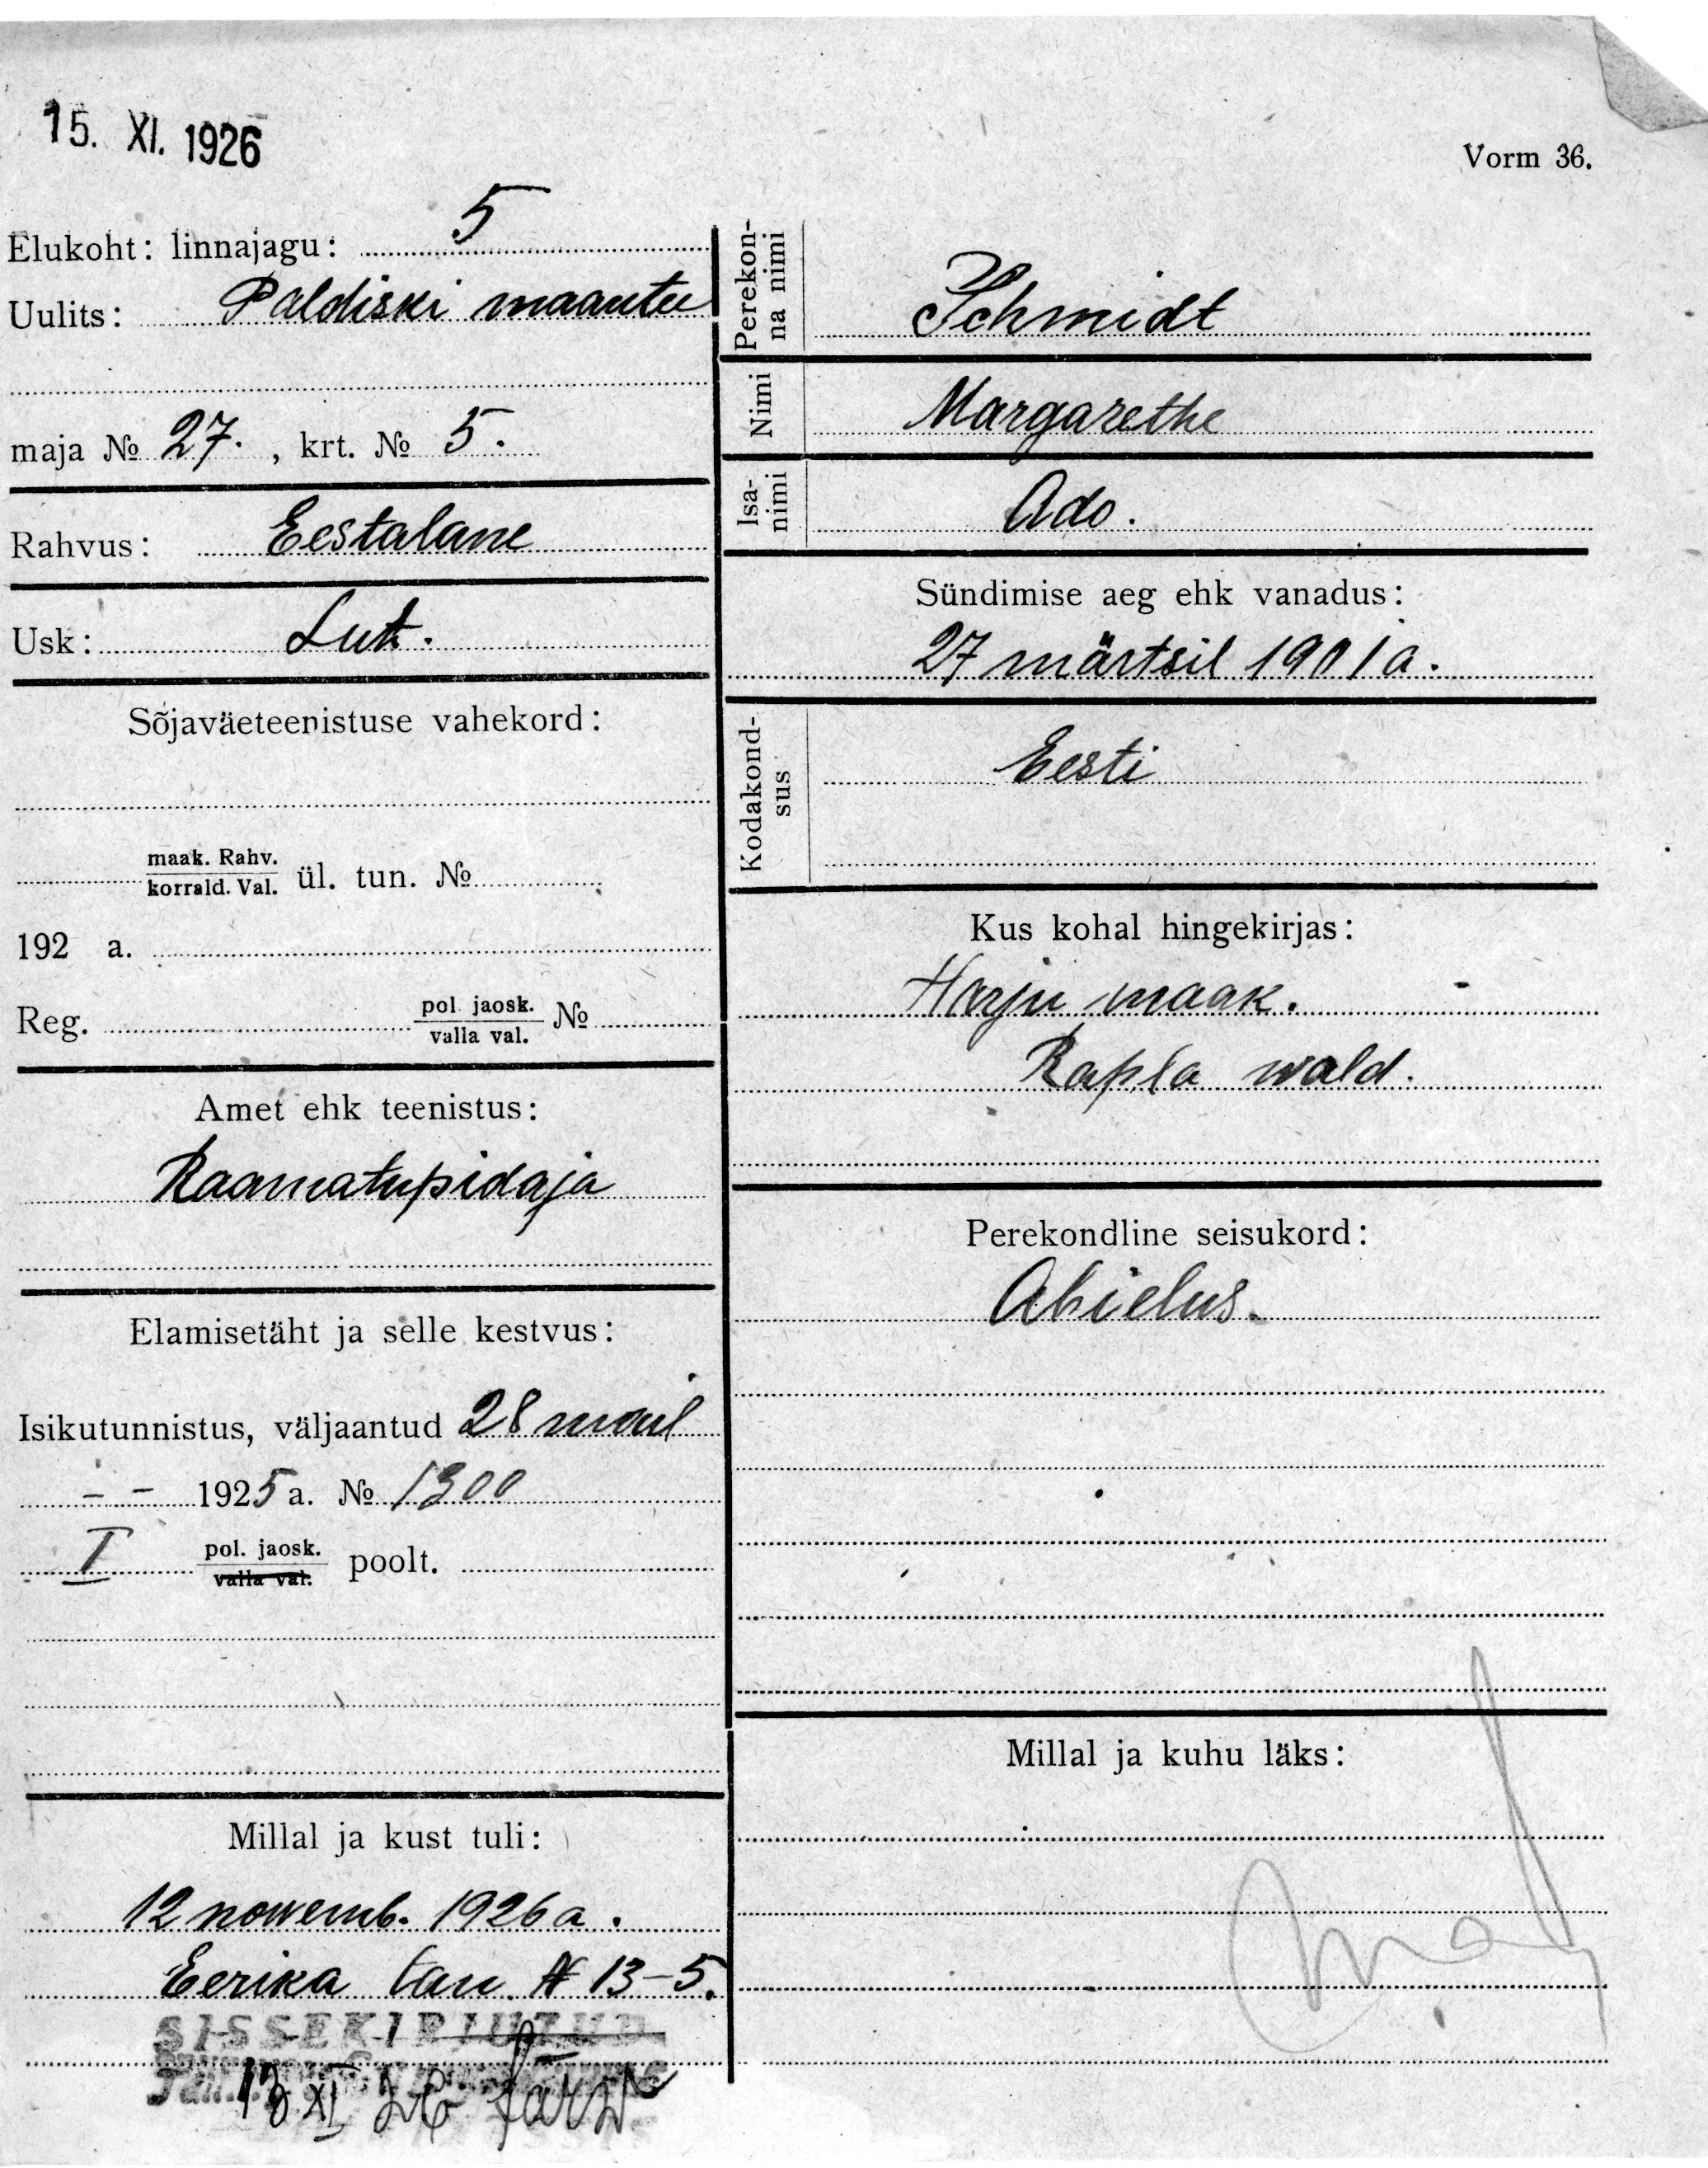 15. XI. 1926
Vorm 36.
Elukoht: linnajagu: 5
Uulits: Paldiski maantee
maja № 27. , krt. № 5.
Rahvus: Eestalane
Usk: Lut.
Sõjaväeteenistuse vahekord:
maak. Rahv.
korrald. Val. ül. tun. №
192 a.
Reg. pol. jaosk.
valla val. №
Amet ehk teenistus:
Raamatupidaja
Elamisetäht ja selle kestvus:
Isikutunnistus, väljaantud 28 mail
- - 1925 a. № 1300
I pol. jaosk.
valla val. poolt.
Millal ja kust tuli:
12 nowemb. 1926 a.
Eerika tän. № 13-5.
SISSEKIRJUTUD
13 XI 26
Perekon-
na nimi
Schmidt
Nimi
Margarethe
Isa-
nimi
Ado.
Sündimise aeg ehk vanadus:
27 märtsil 1901 a.
Kodakond-
sus
Eesti
Kus kohal hingekirjas:
Harju maak.
Rapla wald.
Perekondline seisukord:
Abielus.
Millal ja kuhu läks: